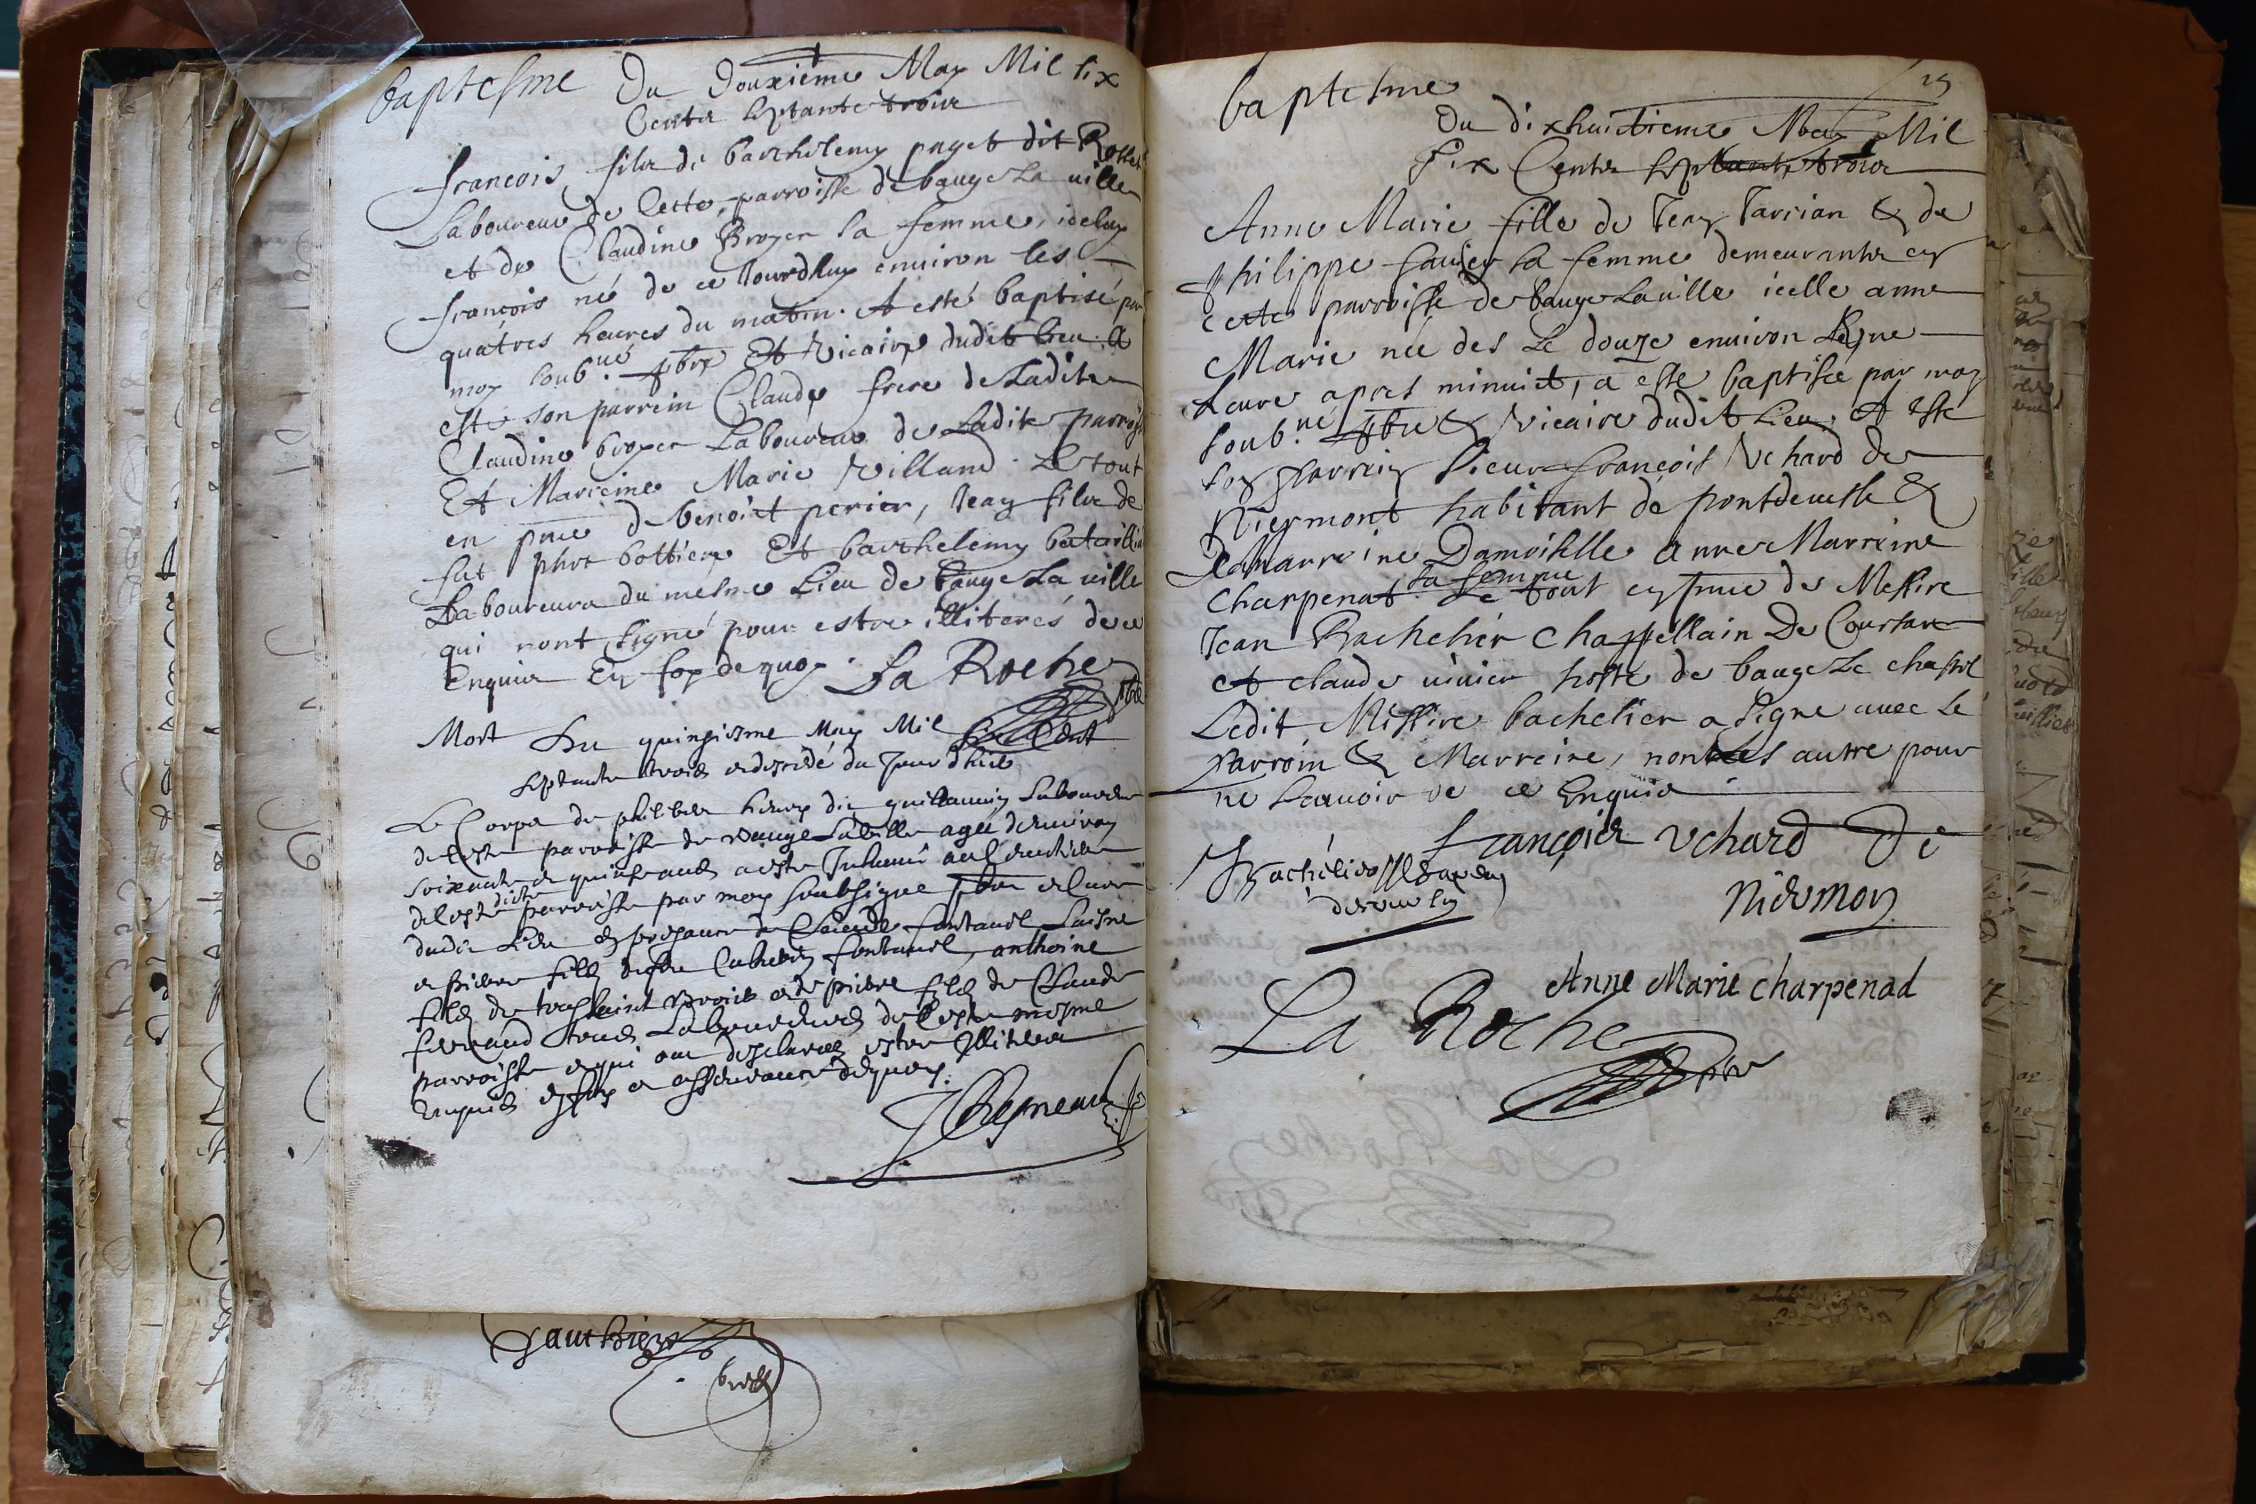 baptesme Du Douxieme May Mil six
Cents septante trois
francois, filz de barthelemy puget dit
Laboureur de Cette parroisse de bauge La uille
et de Claudine Broyer sa femme, iceluy
francois né de ce Jourdhuy enuiron les
quatres heures du matin. A esté baptisé par
moy soub.né pbre Et Vicaire dudit lieu. A
esté son parrein Claude frere de Ladite
Claudine broyer Laboureur de Ladite parroisse
Et Marreine Marie Villand. Le tout
en pnce de benoict perier, Jean filz de
fut phrt bottier Et barthelemy
Laboureurs du mesme Lieu de bauge La uille
qui nont signé pour estre illiterés de ce
Enquis En foy de quoy. La Roche
pbre
Mort Du quinziesme May Mil six Cent
septante trois et decedé du Jour d'huy
Le Corps de philibert dit guillaumin Laboureur
de Ceste parroisse de Bauge La Ville agé d'enuiron
soixante et quinse ans a este Inhumé au Cimetiere
de Ceste dicte parroisse par moy soubsigne pbre et Curé
dudit Lieu en presence de Claude fontanel Laisne
et pierre filz de feu fontanel, anthoine
filz de toussainct et de pierre filz de Claude
ferrand tous Laboureurs de Ceste mesme
parroisse et qui ont desclarez estre Illiteres
Enquis en foy et asseurance dequoy.
Gauthier
baptesme
Du dixhuictieme May Mil
six Cents septante trois
Anne Marie fille de Jean Tarrian & de
Philippe sauier sa femme demeurants en
cette parroisse de bauge La uille icelle anne
Marie née des Le douze enuiron Lhune
heure apres minuict, a este baptisée par moy
soub.né pbre & Vicaire dudit Lieu. A esté
son parrein Sieur francois Vchard de
Niermont habitant de pontdeuesle &
La marreine Damoiselle Anne Marreine
sa femme
Charpenat. Le tout en pnce de Messire
Jean Bachelier Chappellain De Coursant
et claude uiuier hoste de bauge Le chastel
Ledit Messire bachelier a signe auec Le
Parroin & Marreine, non les autre pour
ne Scauoir de ce Enquis
françois Vchard De
Niermon
Anne Marie Charpenad
La Roche
pbre